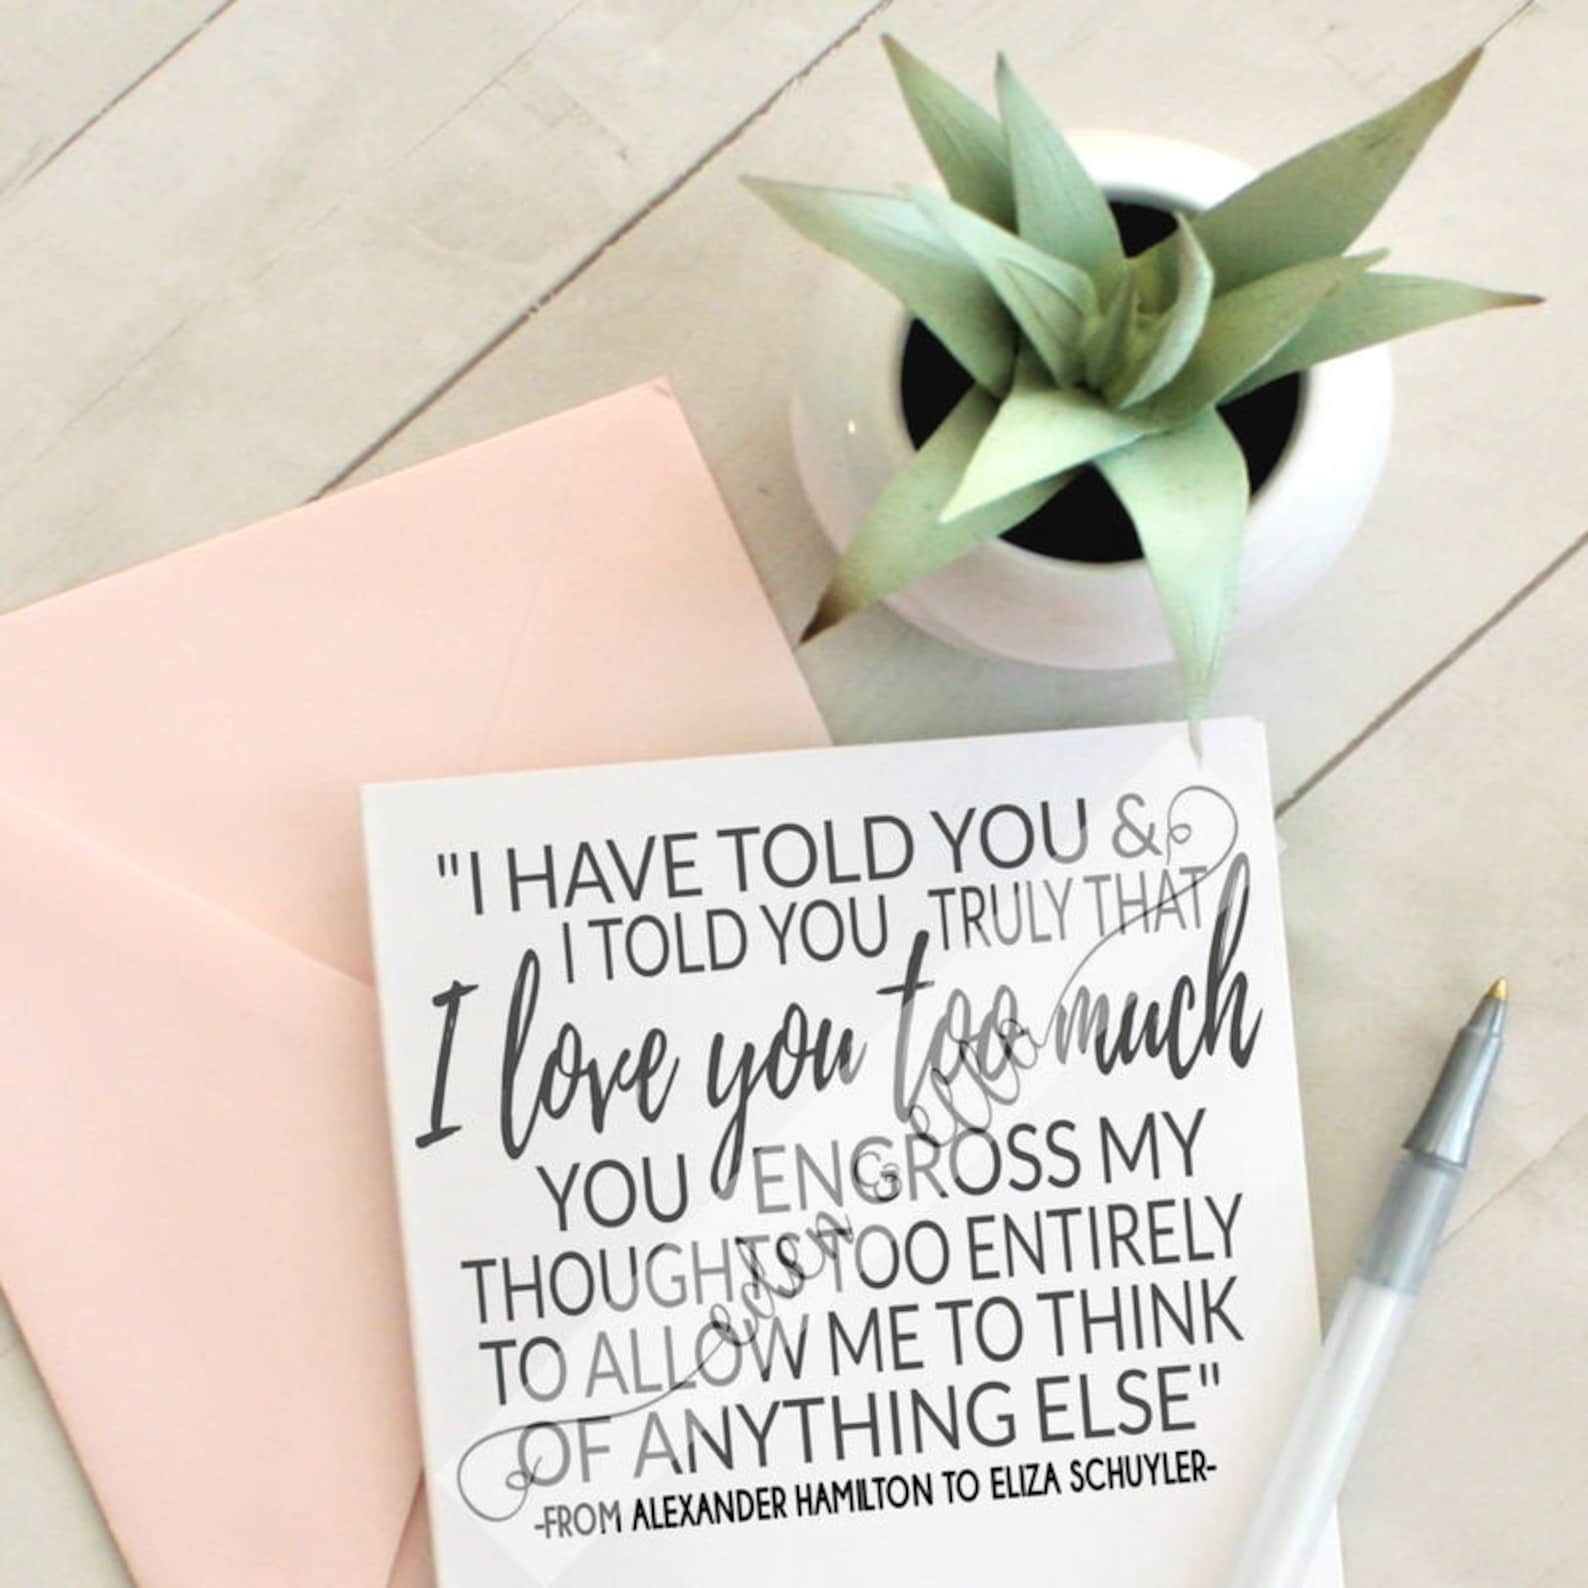 "I HAVE TOLD YOU &
I TOLD YOU TRULY THAT
I love you too much
YOU ENGROSS MY
THOUGHTS TOO ENTIRELY
TO ALLOW ME TO THINK
OF ANYTHING ELSE"
-FROM ALEXANDER HAMILTON TO ELIZA SCHUYLER-
eden & ella